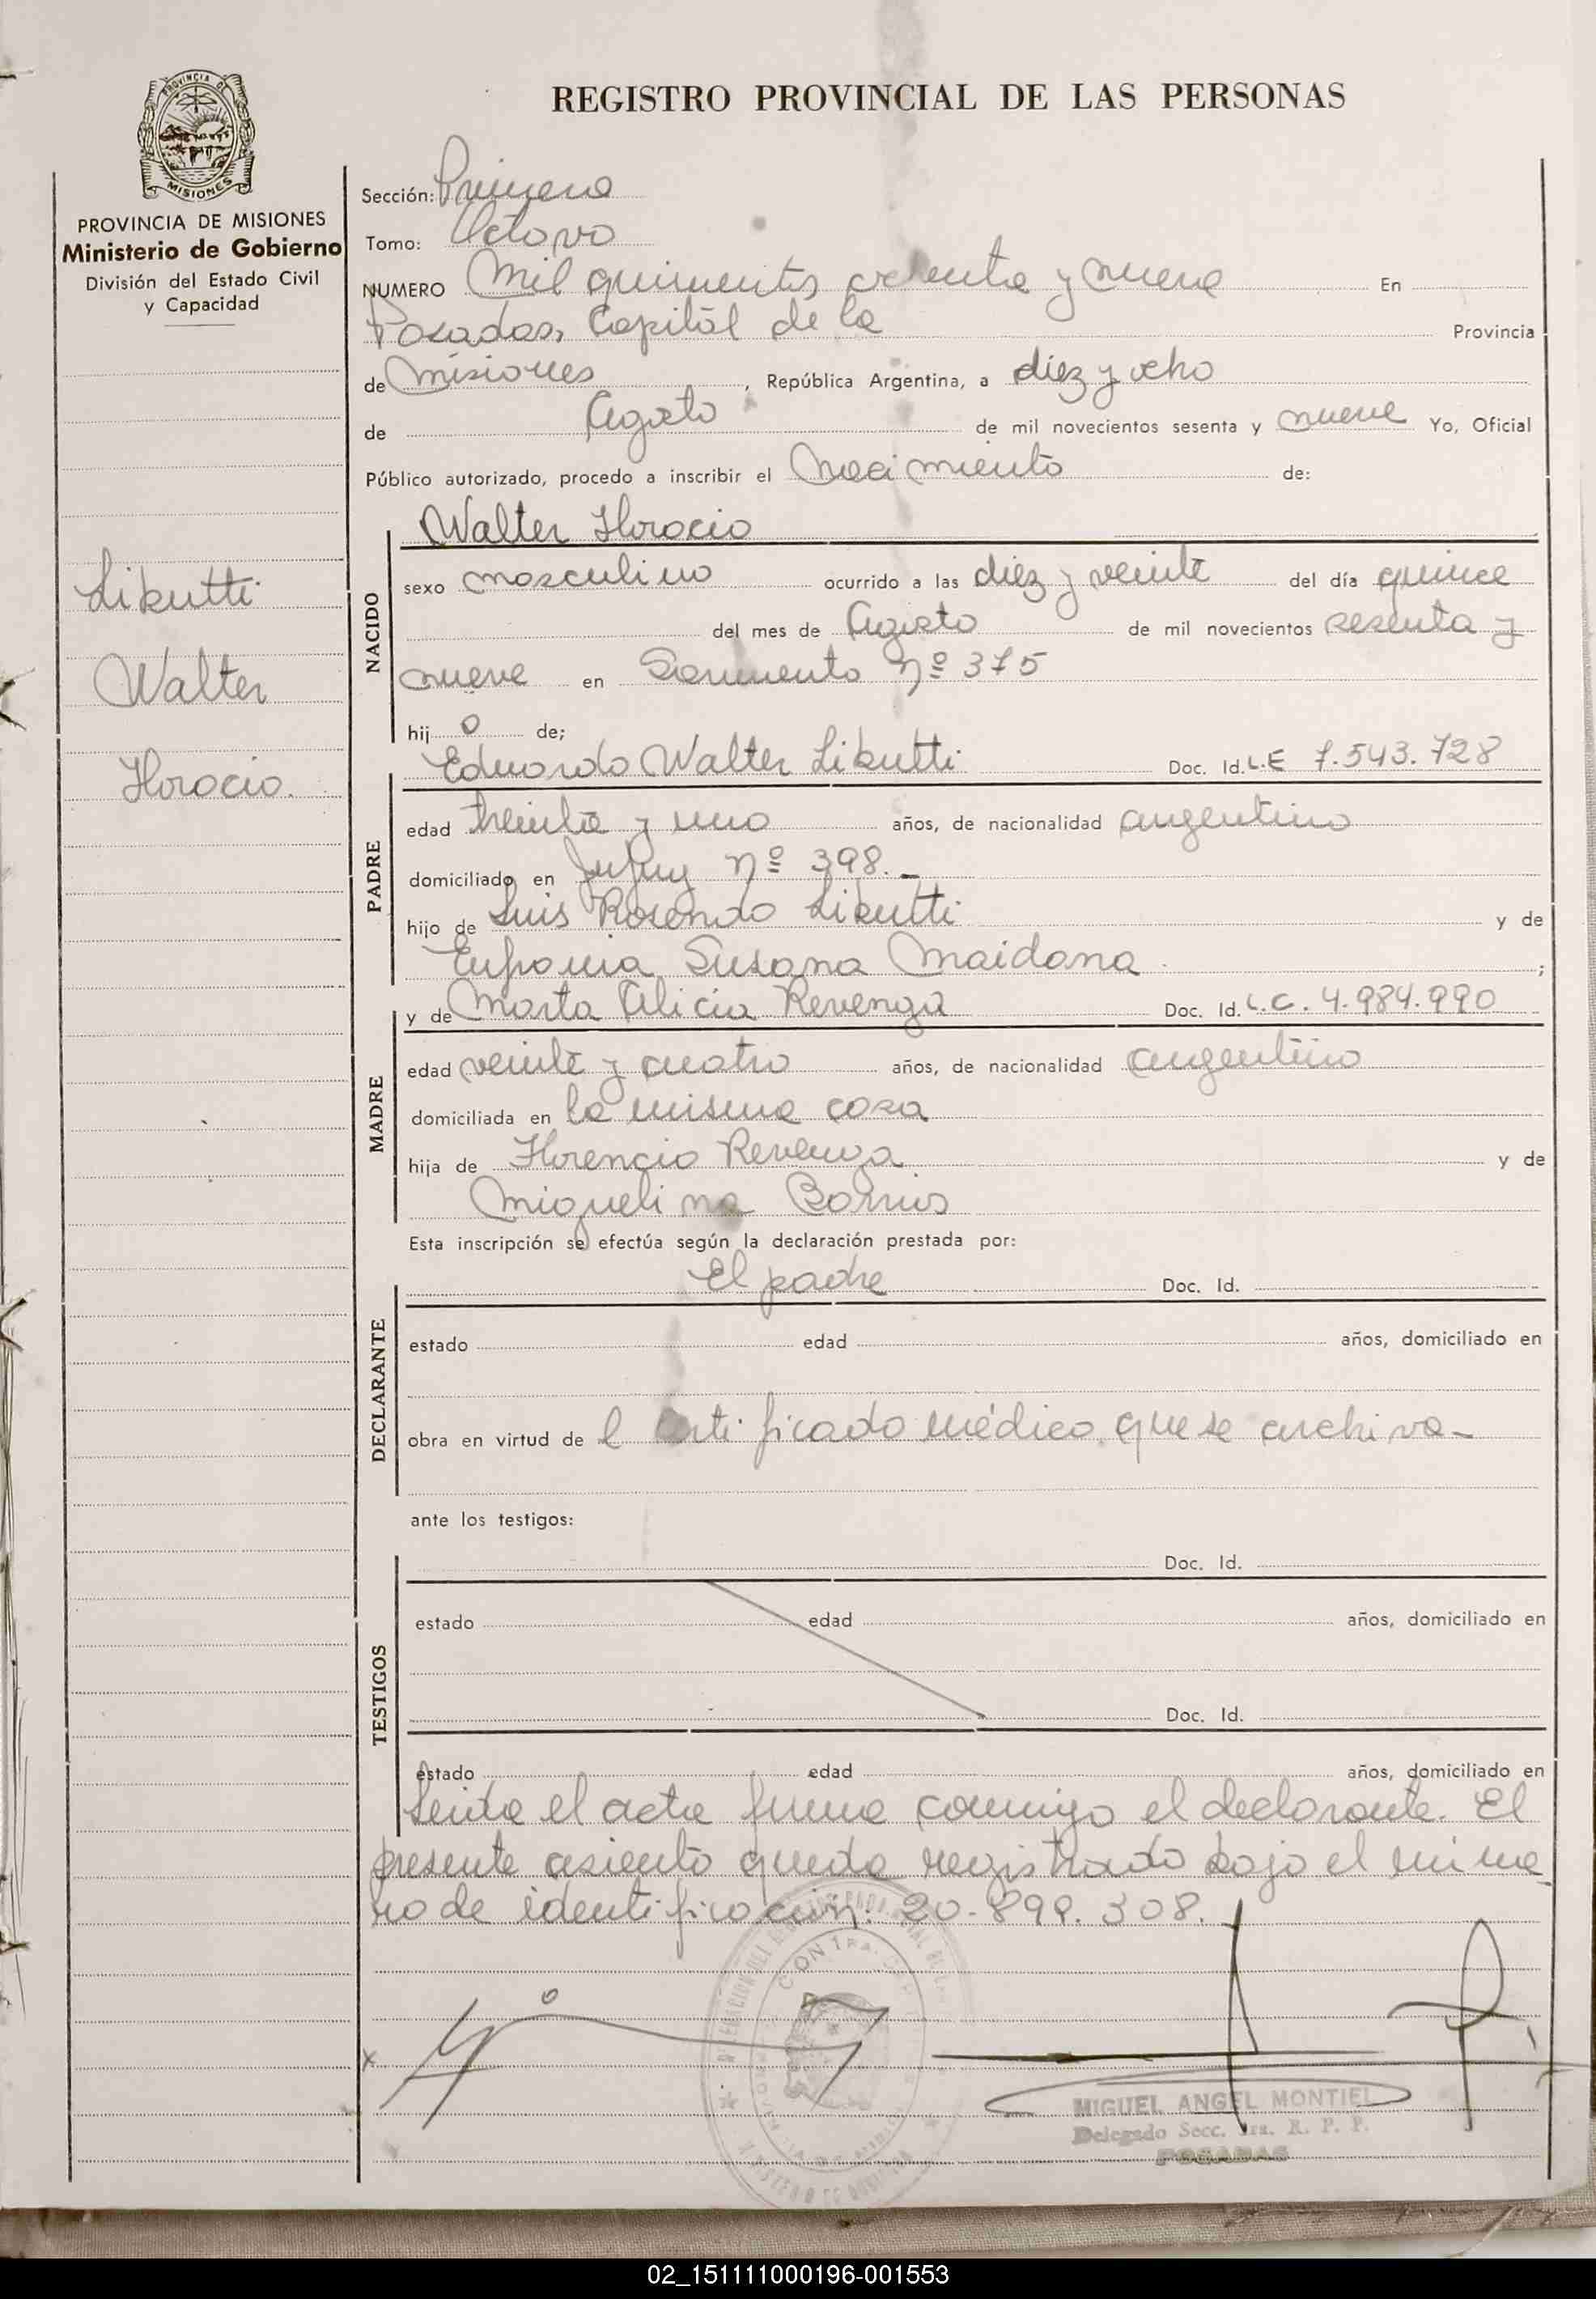 PROVINCIA DE
MISIONES
PROVINCIA DE MISIONES
Ministerio de Gobierno
División del Estado Civil
y Capacidad
Likutti
Walter
Horacio.
REGISTRO PROVINCIAL DE LAS PERSONAS
Sección: Primera
Tomo: Octavo
NUMERO Mil quinientos ochenta y nueve En
Posadas, Capital de la Provincia
de Misiones, República Argentina, a diez y ocho
de Agosto de mil novecientos sesenta y nueve Yo, Oficial
Público autorizado, procedo a inscribir el Nacimiento de:
NACIDO
Walter Horacio
sexo masculino ocurrido a las diez y veinte del día quince
del mes de Agosto de mil novecientos sesenta y
nueve en Sarmiento Nº 375
hij o de;
PADRE
Eduardo Walter Likutti Doc. Id. L.E 7.543.728
edad treinta y uno años, de nacionalidad argentino
domiciliado en Jujuy Nº 398.-
hijo de Luis Rosendo Likutti y de
Eufronia Susana Maidana ;
MADRE
y de Marta Alicia Revenga Doc. Id. L.C. 4.984.990
edad veinte y cuatro años, de nacionalidad argentino
domiciliada en la misma casa
hija de Florencio Revenga y de
Miguelina
Esta inscripción se efectúa según la declaración prestada por:
DECLARANTE
El padre Doc. Id.
estado edad años, domiciliado en
obra en virtud de l Certificado médico que se archiva-
ante los testigos:
TESTIGOS
Doc. Id.
estado edad años, domiciliado en
Doc. Id.
estado edad años, domiciliado en
Leida el acta firma conmigo el declarante. El
presente asiento queda registrado bajo el núme
ro de identificación: 20.898.308.
x
MIGUEL ANGEL MONTIEL
Delegado Secc. 1ra. R. P. P.
POSADAS
02_151111000196-001553